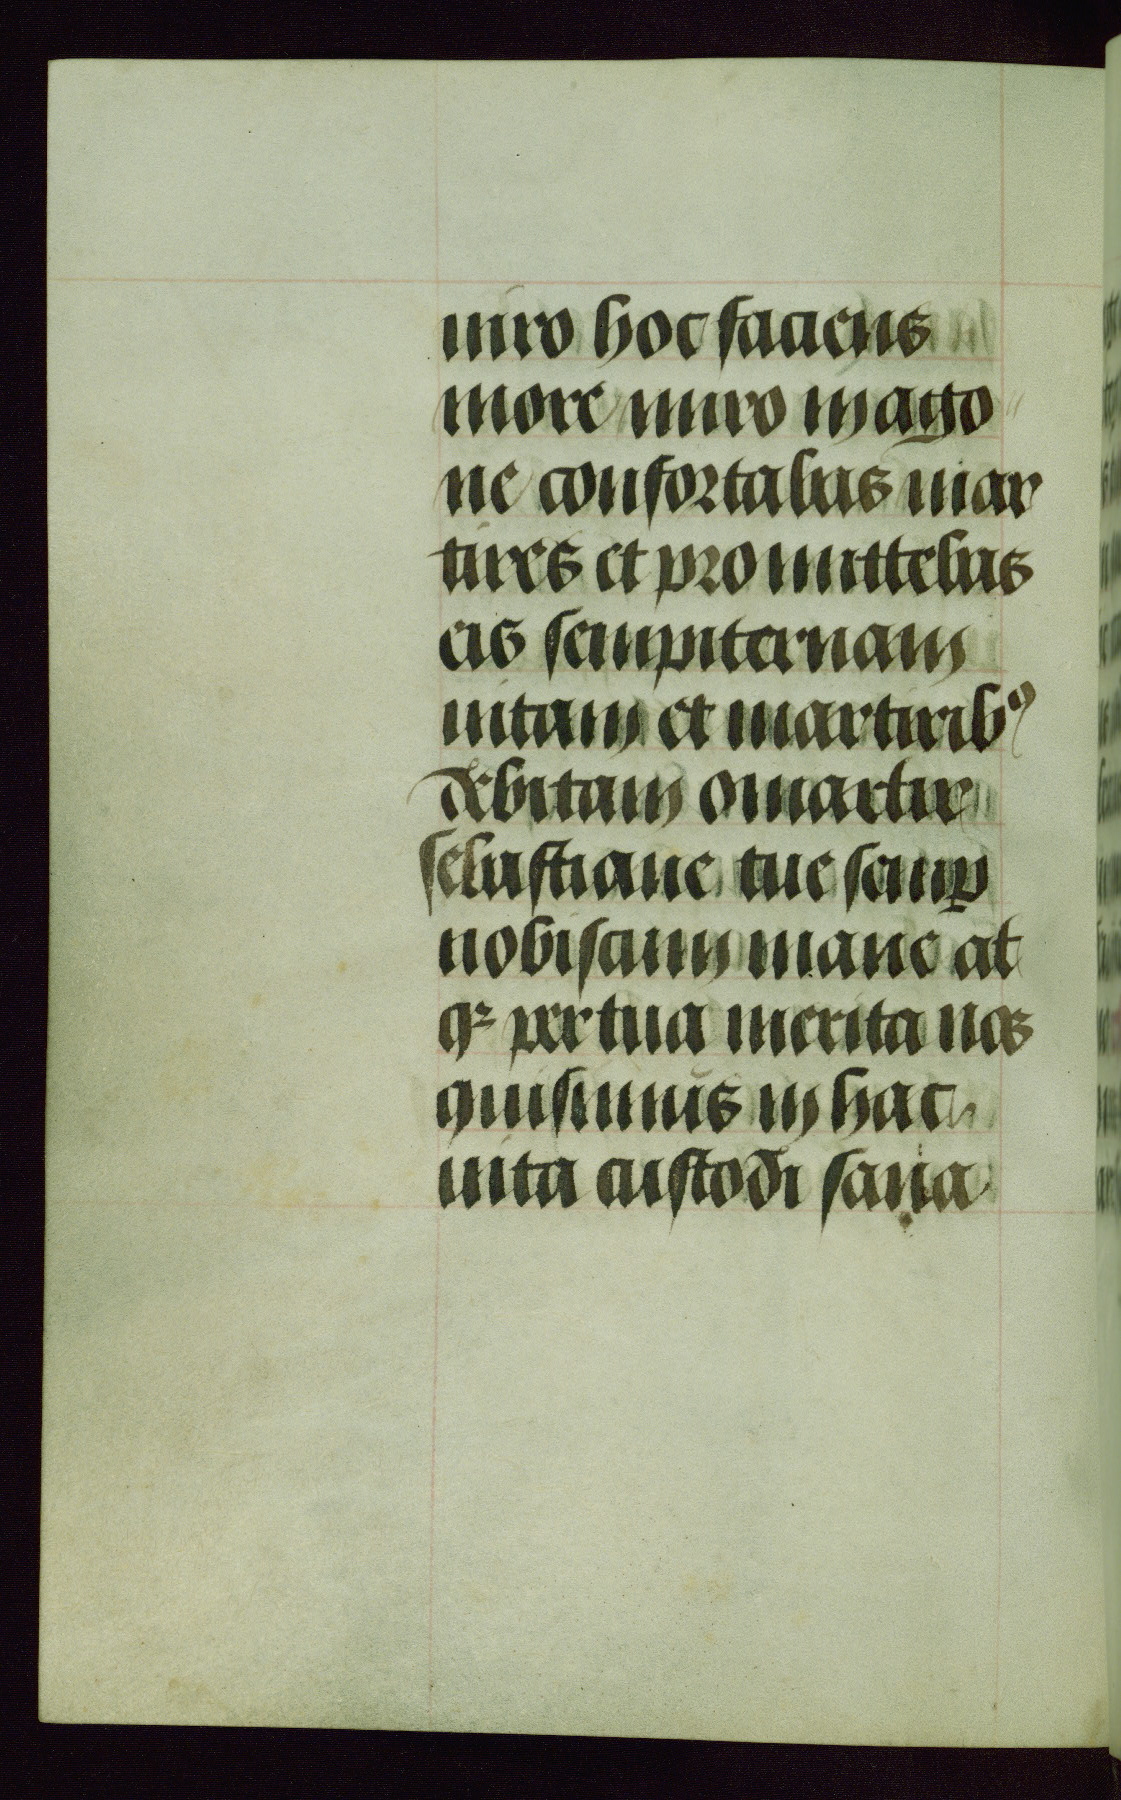 miro hoc faciens
more miro in ago
ne confortabas mar
tires et promittebas
eis sempiternam
uitam et martiribꝰ
debitam o martir
sebastiane tue semꝑ
nobiscum mane at
qꝫ per tua merita nos
qui sumus in hac
uita custodi sana